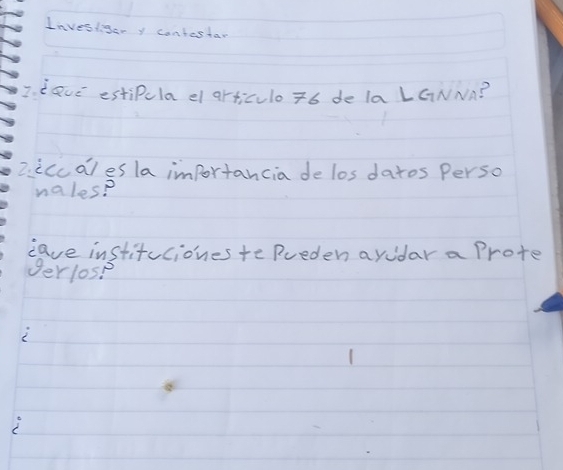 Investigar y contestar
1.¿Qué estipula el articulo 76 de la LGNNA?
2.¿Cuál es la importancia de los datos Perso
nales?
¿Que instituciones te Pueden ayudar a Prote
gerlos?
¿
¿